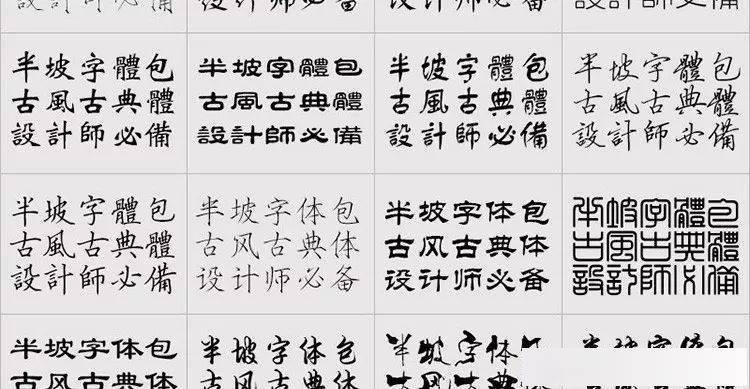 設計師必備
設計師必備
半坡字體包
古風古典體
設計師必備
半坡字體包
古風古典體
設計師必備
半坡字體包
古風古典體
設計師必備
半坡字體包
古風古典體
設計師必備
半坡字體包
古風古典體
設計師必備
半坡字体包
古风古典体
设计师必备
半坡字体包
古风古典体
设计师必备
半坡字體包
古風古典體
設計師必備
半坡字体包
古风古典体
半坡字体包
古风古典体
半坡字体包
古风古典
半坡字体包